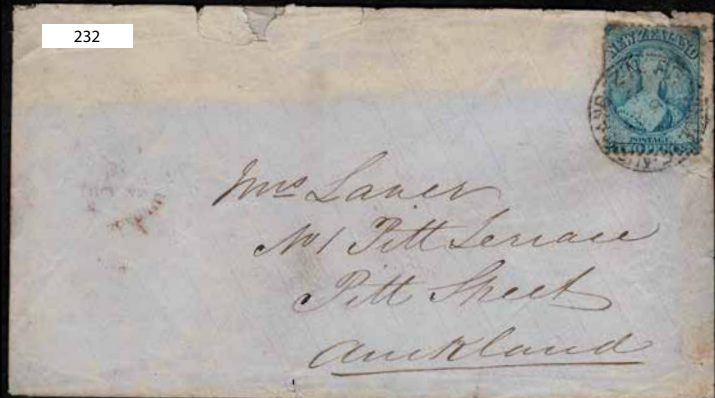 232
NEW ZEALAND
POSTAGE
TWO PENCE
Mrs Laver
No 1 Pitt Terrace
Pitt Street
Auckland